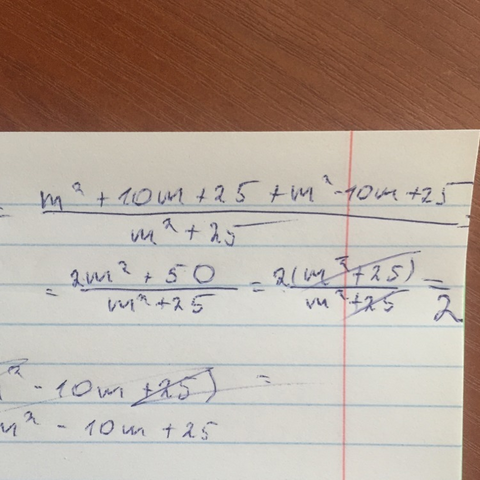 = m² + 10m + 25 + m² - 10m + 25 =
m² + 25
= 2m² + 50 = 2(m² + 25) = 2
m² + 25 m² + 25
² - 10m + 25) =
m² - 10m + 25